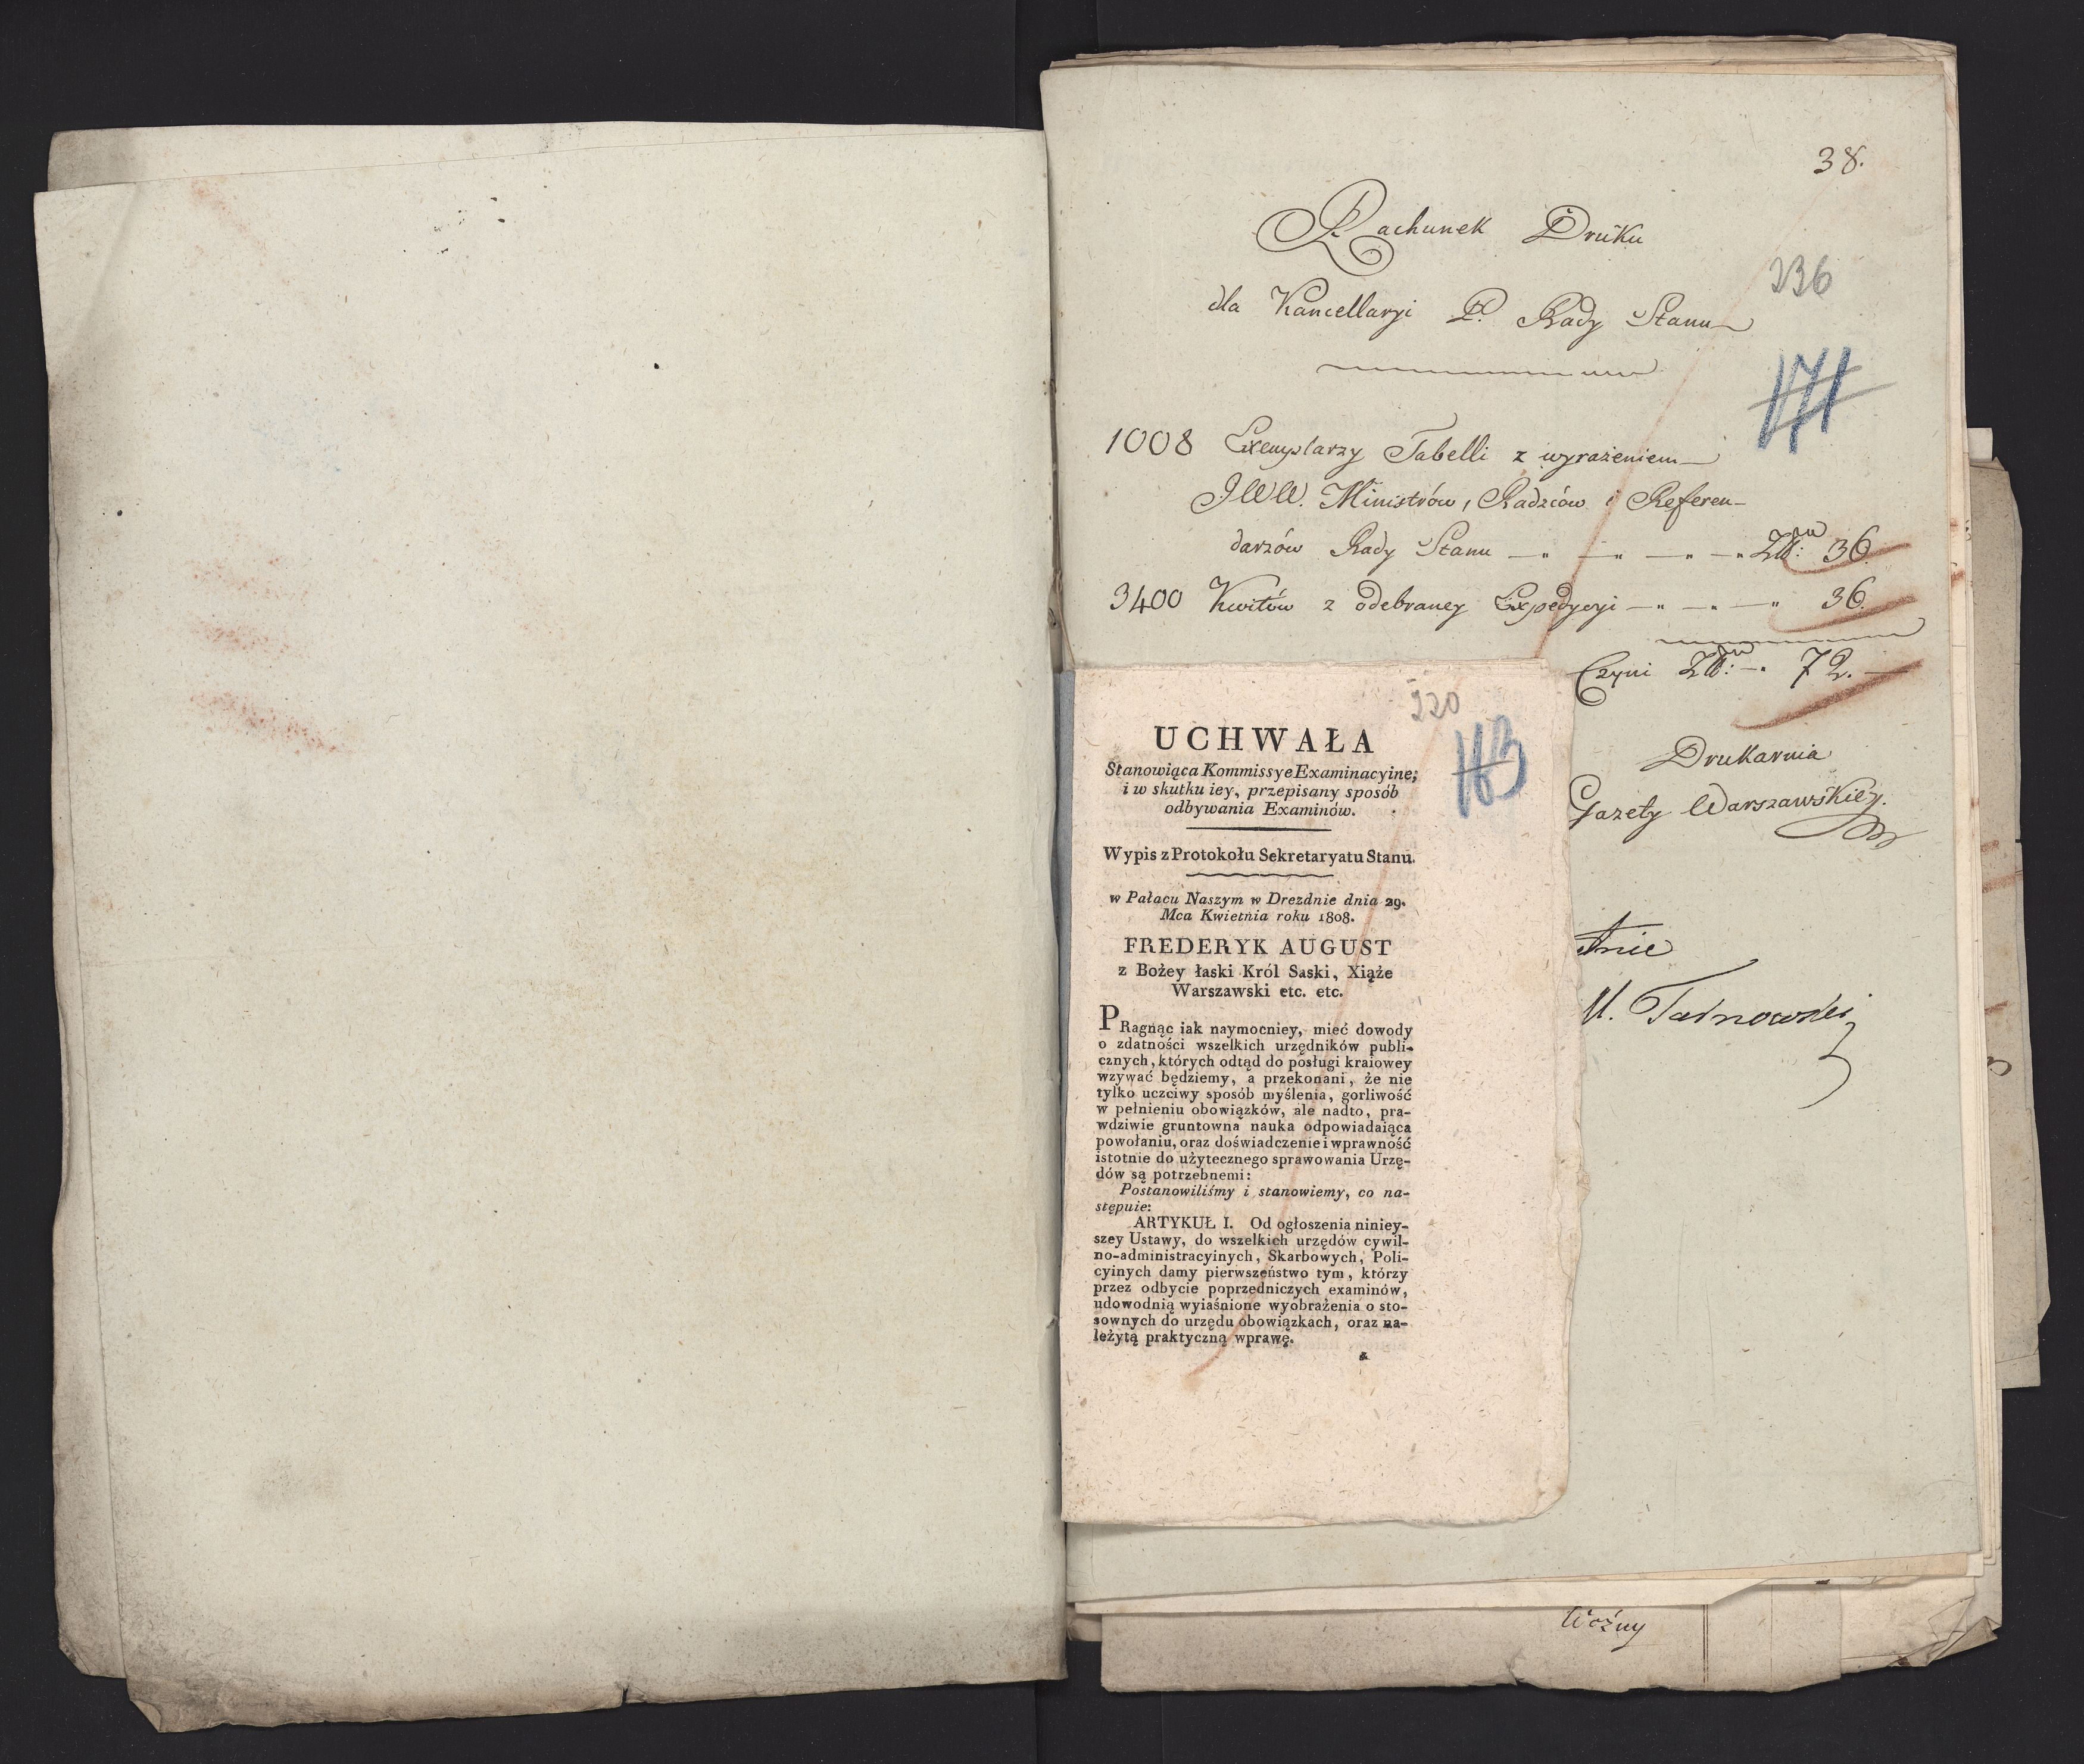 38.
Rachunek Druku
236
dla Kancellaryi P. Rady Stanu
171
1008 Exemplarzy Tabelli z wyrażeniem
JWW. Ministrów, Radzców i Referen-
darzów Rady Stanu — „ — „ — „ — „ Zł: 36
3400 Kwitów z odebraney Expedycyi — „ — „ — „ 36.
Czyni Zł: — „ 72. —
Drukarnia
Gazety Warszawskiey.
tnie
M. Tarnowski
220
163
UCHWAŁA
Stanowiąca Kommissye Examinacyine;
i w skutku iey, przepisany sposób
odbywania Examinów.
Wypis z Protokołu Sekretaryatu Stanu.
w Pałacu Naszym w Dreżdnie dnia 29.
Mca Kwietnia roku 1808.
FREDERYK AUGUST
z Bożey łaski Król Saski, Xiąże
Warszawski etc. etc.
PRagnąc iak naymocniey, mieć dowody
o zdatności wszelkich urzędników publi-
cznych, których odtąd do posługi kraiowey
wzywać będziemy, a przekonani, że nie
tylko uczciwy sposób myślenia, gorliwość
w pełnieniu obowiązków, ale nadto, pra-
wdziwie gruntowna nauka odpowiadaiąca
powołaniu, oraz doświadczenie i wprawność
istotnie do użytecznego sprawowania Urzę-
dów są potrzebnemi:
Postanowiliśmy i stanowiemy, co na-
stępuie:
ARTYKUŁ I. Od ogłoszenia niniey-
szey Ustawy, do wszelkich urzędów cywil-
no-administracyinych, Skarbowych, Poli-
cyinych damy pierwszeństwo tym, którzy
przez odbycie poprzedniczych examinów,
udowodnią wyiaśnione wyobrażenia o sto-
sownych do urzędu obowiązkach, oraz na-
leżytą praktyczną wprawę.
Woźny